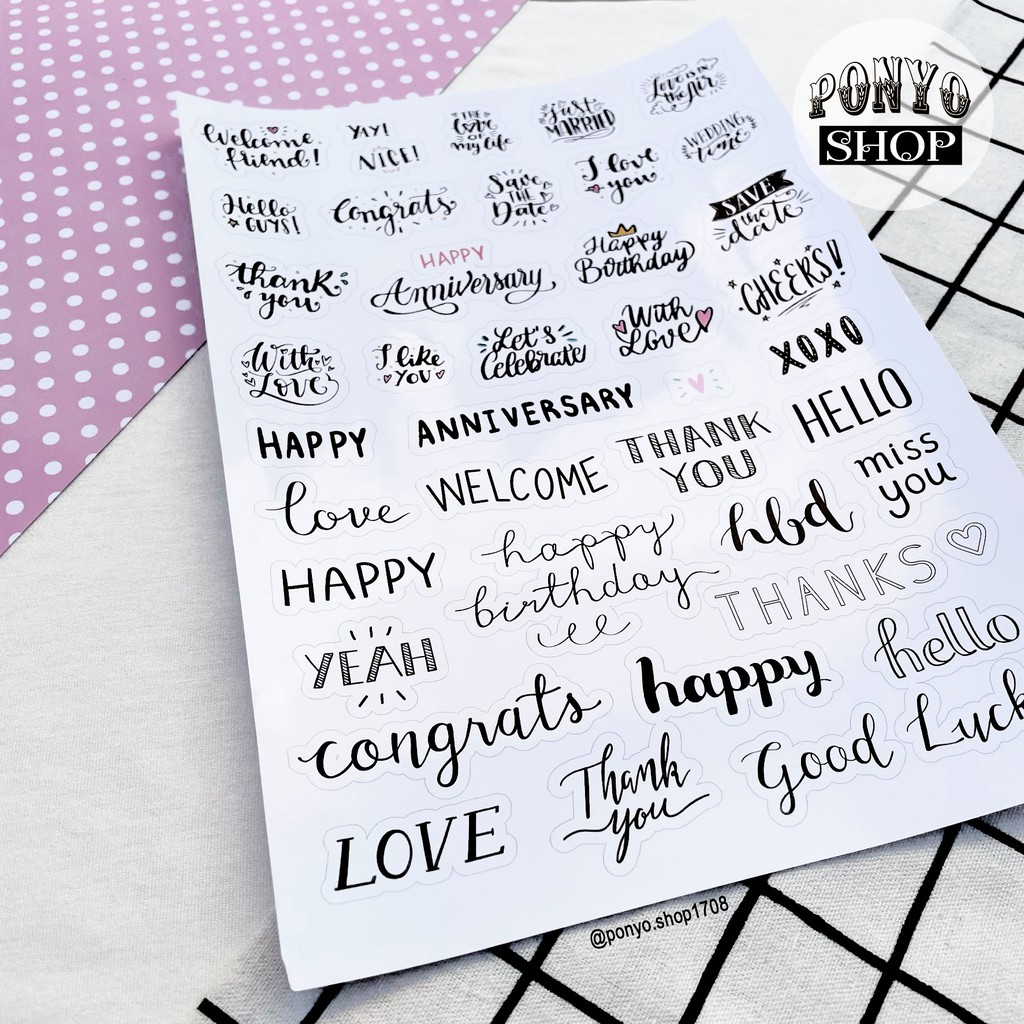 PONYO
SHOP
Welcome
friend!
YAY!
NICE!
THE
love
OF
my life
just
MARRIED
Love is in
the Air
Hello
GUYS!
Congrats
Save
THE
Date
I love
you
WEDDING
time
thank
you
HAPPY
Anniversary
Happy
Birthday
SAVE
the
date
With
Love
I like
YOU
Let's
Celebrate
With
Love
CHEERS!
HAPPY
ANNIVERSARY
XOXO
love
WELCOME
THANK
YOU
HELLO
HAPPY
happy
birthday
hbd
miss
you
YEAH
THANKS
congrats
happy
hello
LOVE
Thank
you
Good Luck
@ponyo.shop1708